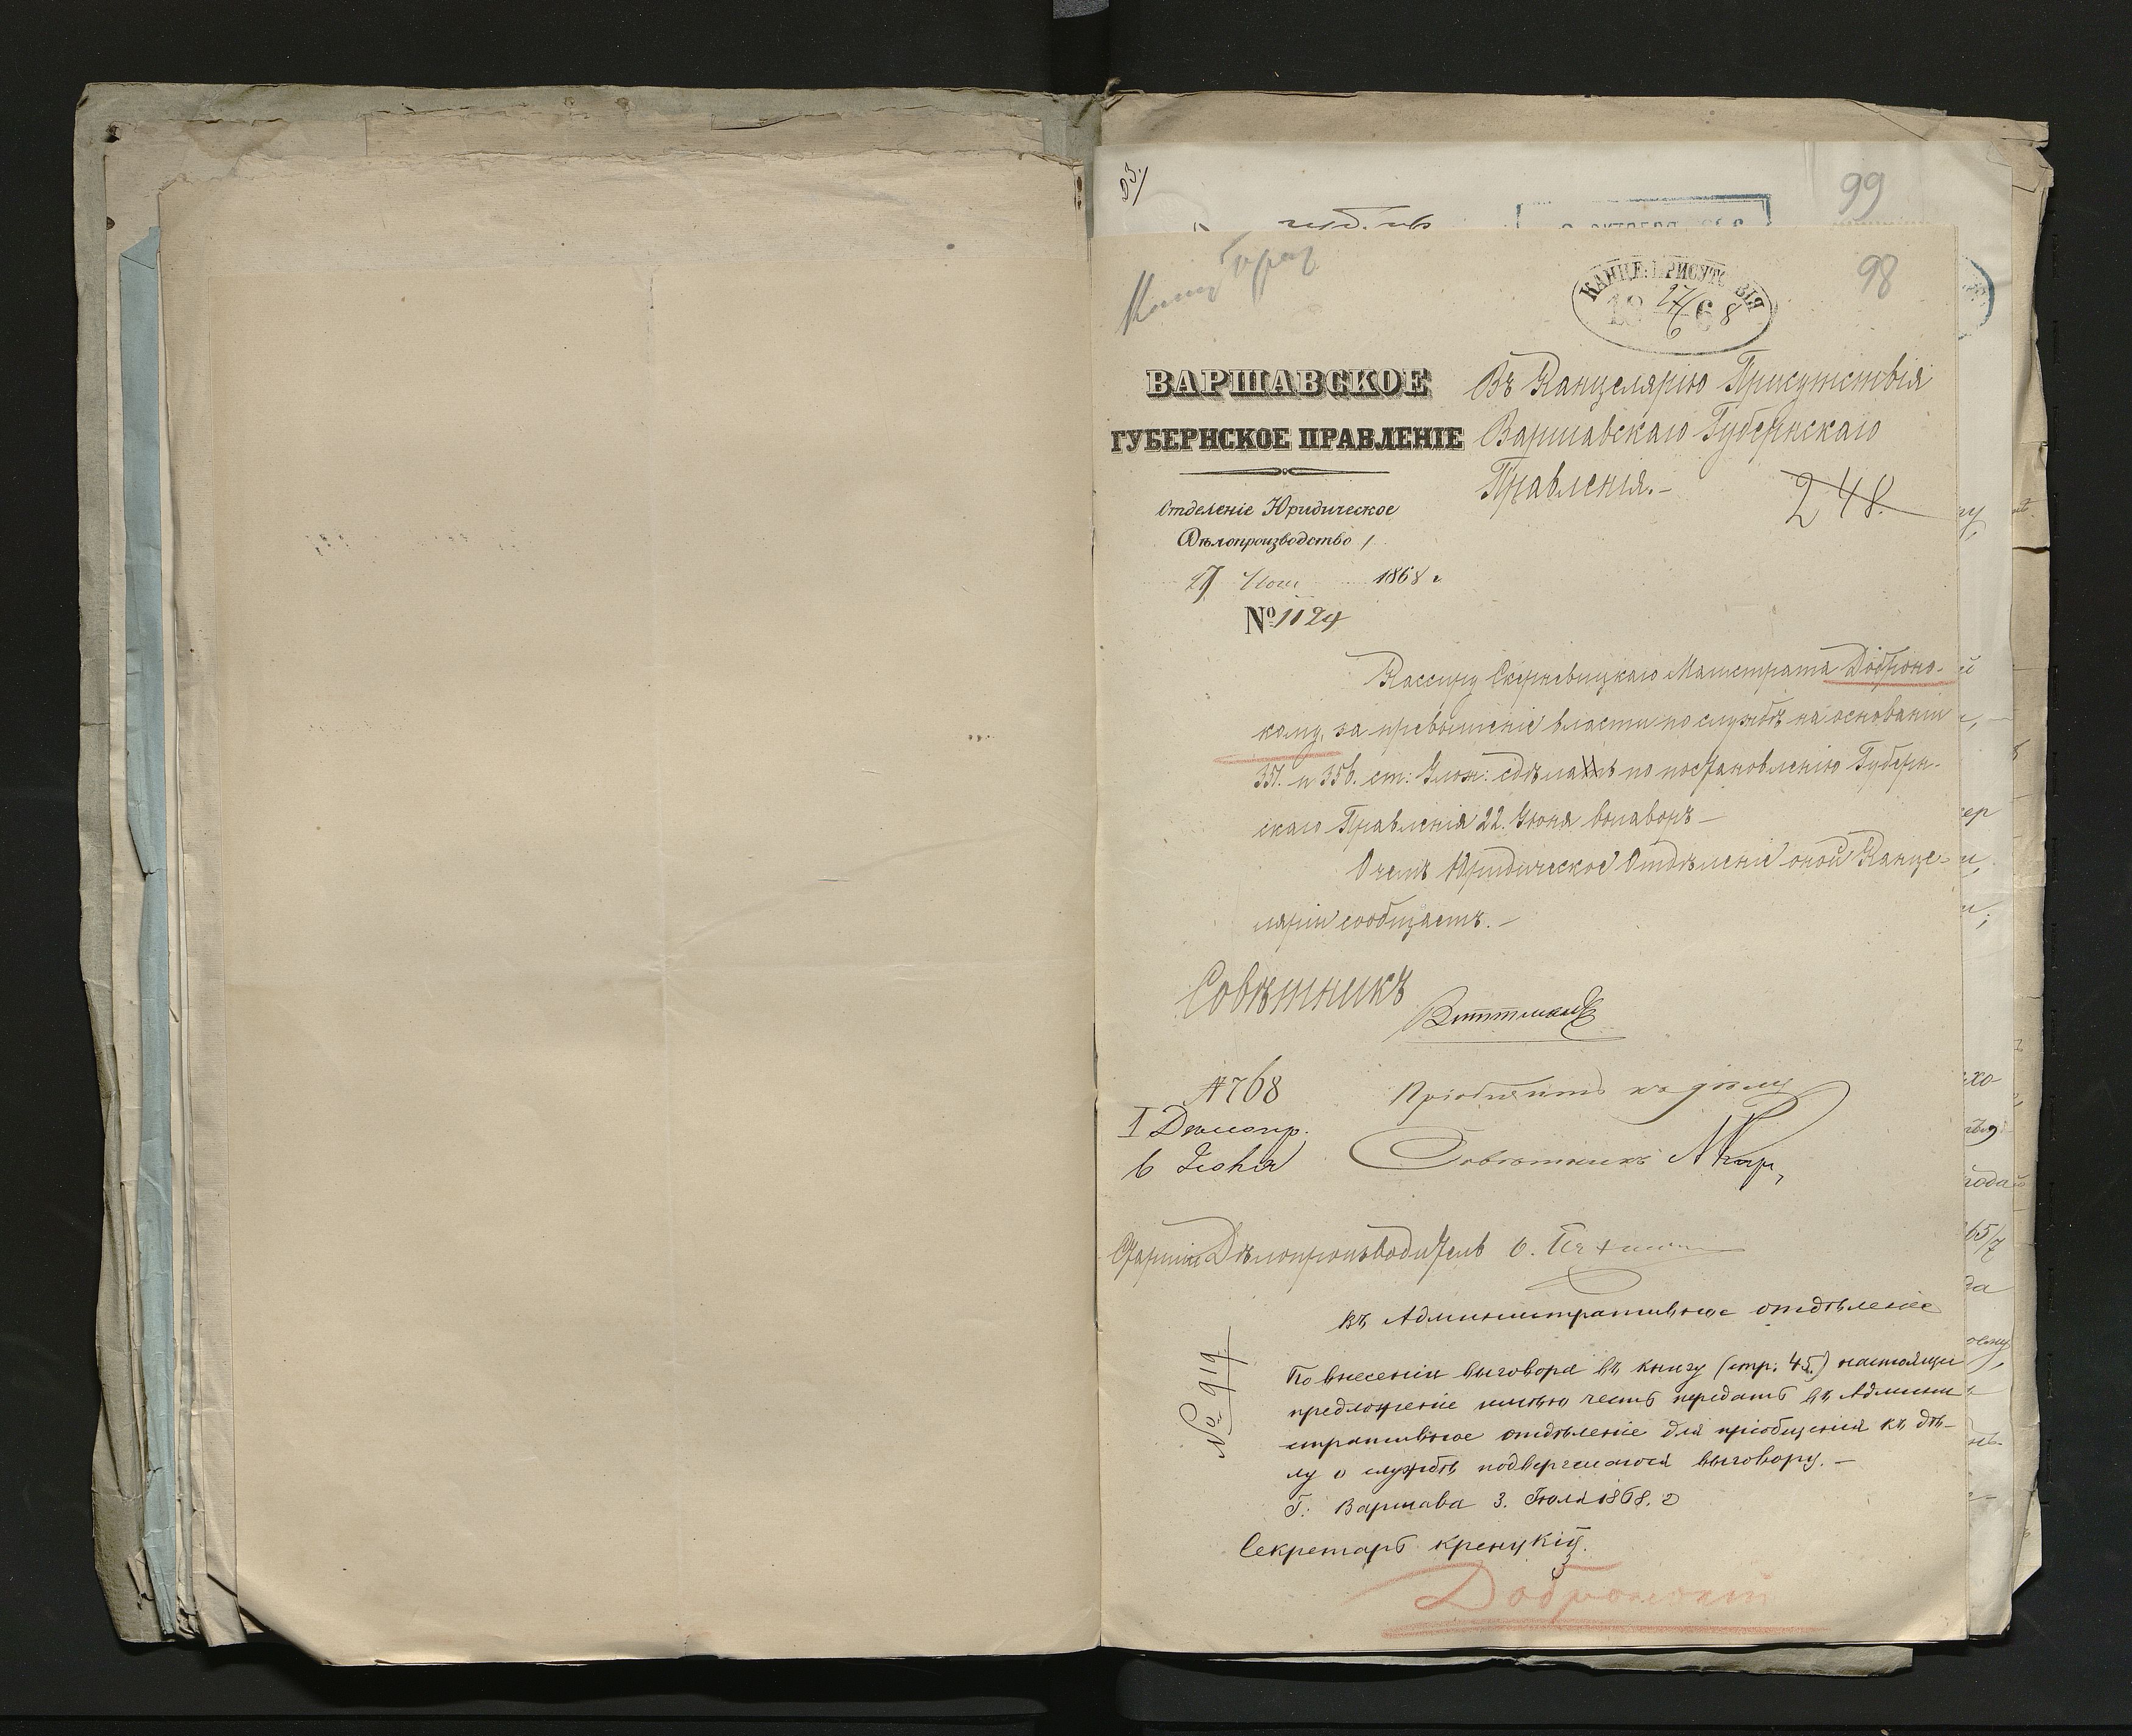 99
98
КАНЦЕ. ПРИСУТСТВІЯ
18 27/6 68
ВАРШАВСКОЕ
ГУБЕРНСКОЕ ПРАВЛЕНІЕ
Отделеніе Юридическое
Дѣлопроизводство 1
27 Іюня 1868 г
№ 1124
Въ Канцелярію Присутствія
Варшавскаго Губернскаго
Правленія.—
248.
Кассиру Скерневицкаго Магистрата Добронс-
кому, за превышеніе власти по службѣ на основаніи
351. и 356. ст: Улож: сдѣланъ по постановленію Губерн-
скаго Правленія 22. Іюня выговоръ—
О чемъ Юридическое Отдѣленіе оной Канце-
ляріи сообщаетъ.—
Совѣтникъ
№768
I Дѣлопр.
6 Іюня
Пріобщить къ дѣлу
Совѣтникъ
Старшій Дѣлопроизводитель
Въ Административное отдѣленіе
№ 919
По внесеніи выговора въ книгу (стр: 45.) настоящее
предложеніе имѣю честь передать въ Админи
стративное отдѣленіе для пріобщенія къ дѣ-
лу о службѣ подвергшагося выговору.—
Г: Варшава 3. Іюля 1868. г
Секретарь Кренцкій
Добронскій